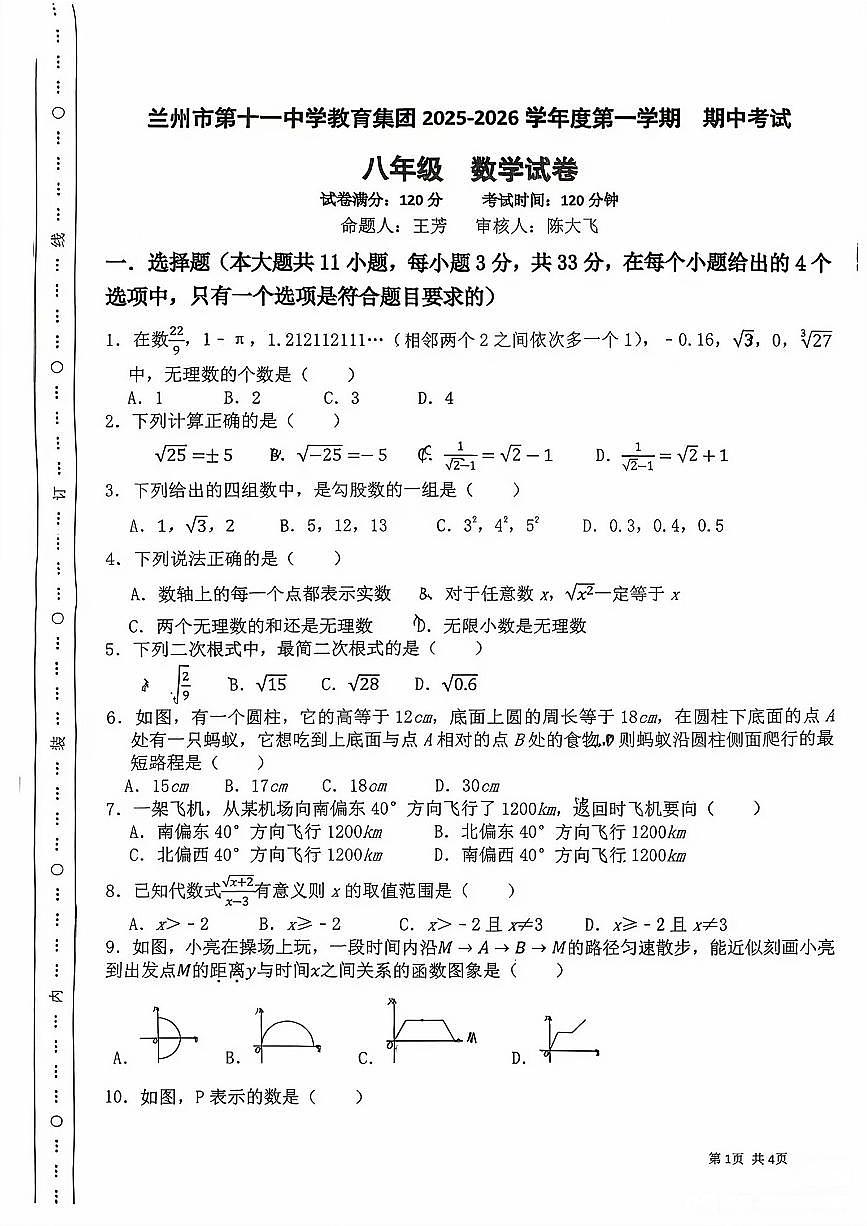 兰州市第十一中学教育集团 2025-2026 学年度第一学期 期中考试
八年级 数学试卷
试卷满分：120 分 考试时间：120 分钟
命题人：王芳 审核人：陈大飞
一．选择题（本大题共 11 小题，每小题 3 分，共 33 分，在每个小题给出的 4 个
选项中，只有一个选项是符合题目要求的）
1．在数22/9，1﹣π，1.212112111…（相邻两个 2 之间依次多一个 1），﹣0.16，√3，0，∛27
中，无理数的个数是（ ）
A．1 B．2 C．3 D．4
2．下列计算正确的是（ ）
√25 =±5 B．√-25 =-5 C．1/(√2-1) = √2 - 1 D．1/(√2-1) = √2 + 1
3．下列给出的四组数中，是勾股数的一组是（ ）
A．1，√3，2 B．5，12，13 C．3²，4²，5² D．0.3，0.4，0.5
4．下列说法正确的是（ ）
A．数轴上的每一个点都表示实数 B、对于任意数 x，√x²一定等于 x
C．两个无理数的和还是无理数 D．无限小数是无理数
5．下列二次根式中，最简二次根式的是（ ）
√(2/9) B．√15 C．√28 D．√0.6
6．如图，有一个圆柱，它的高等于 12cm，底面上圆的周长等于 18cm，在圆柱下底面的点 A
处有一只蚂蚁，它想吃到上底面与点 A 相对的点 B 处的食物，则蚂蚁沿圆柱侧面爬行的最
短路程是（ ）
A．15cm B．17cm C．18cm D．30cm
7．一架飞机，从某机场向南偏东 40° 方向飞行了 1200km，返回时飞机要向（ ）
A．南偏东 40° 方向飞行 1200km B．北偏东 40° 方向飞行 1200km
C．北偏西 40° 方向飞行 1200km D．南偏西 40° 方向飞行 1200km
8．已知代数式√(x+2)/(x-3)有意义则 x 的取值范围是（ ）
A．x＞﹣2 B．x≥﹣2 C．x＞﹣2 且 x≠3 D．x≥﹣2 且 x≠3
9．如图，小亮在操场上玩，一段时间内沿M → A → B → M的路径匀速散步，能近似刻画小亮
到出发点M的距离y与时间x之间关系的函数图象是（ ）
A． B． C． D．
10．如图，P 表示的数是（ ）
第 1页 共 4页
线
订
装
内